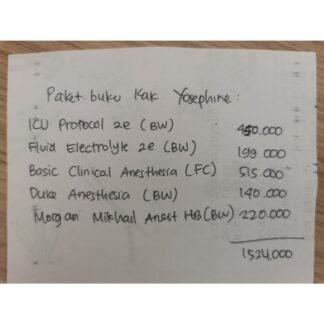 Paket buku Kak Yosephine :
ICU Protocol 2e (BW) 450.000
Fluid Electrolyte 2e (BW) 199.000
Basic Clinical Anesthesia (FC) 515.000
Duke Anesthesia (BW) 140.000
Morgan Mikhail Anest HB (BW) 220.000
1524.000